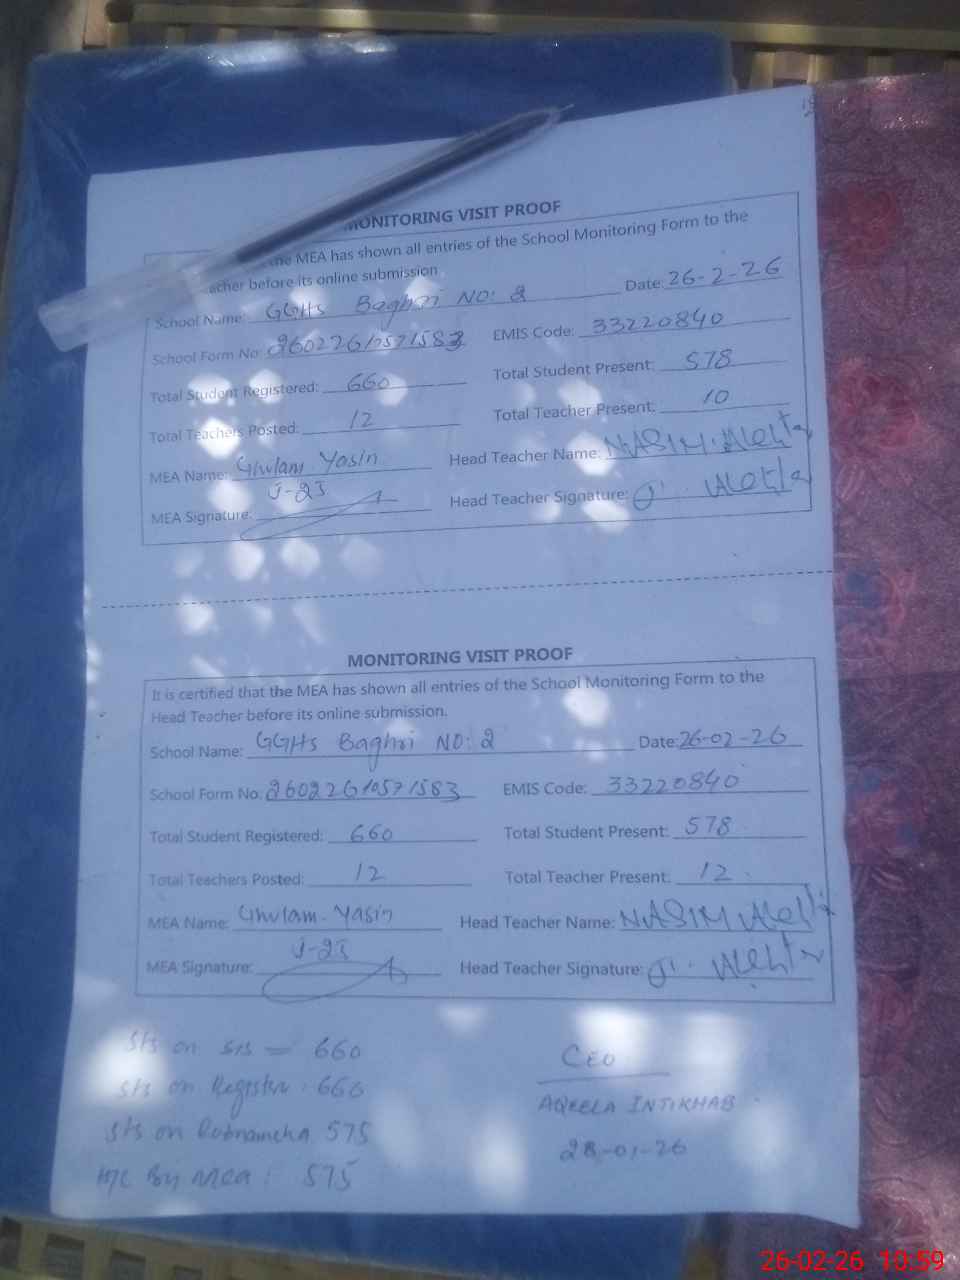 MONITORING VISIT PROOF
the MEA has shown all entries of the School Monitoring Form to the
acher before its online submission
School Name: GGHS Baghri NO: 2 Date: 26-2-26
School Form No: EMIS Code: 33220840
Total Student Registered: 660 Total Student Present: 578
Total Teachers Posted: 12 Total Teacher Present: 10
MEA Name: Ghulam Yasin Head Teacher Name: NASIM
MEA Signature: J-23 Head Teacher Signature:
MONITORING VISIT PROOF
It is certified that the MEA has shown all entries of the School Monitoring Form to the
Head Teacher before its online submission.
School Name: GGHS Baghri NO: 2 Date: 26-02-26
School Form No: EMIS Code: 33220840
Total Student Registered: 660 Total Student Present: 578
Total Teachers Posted: 12 Total Teacher Present: 12
MEA Name: Ghulam Yasin Head Teacher Name: NASIM
MEA Signature: J-23 Head Teacher Signature:
Sts on SIS = 660
Sts on Register: 660
Sts on 575
H/C By MEA: 575
CEO
AQEELA INTIKHAB
28-01-26
26-02-26 10:59